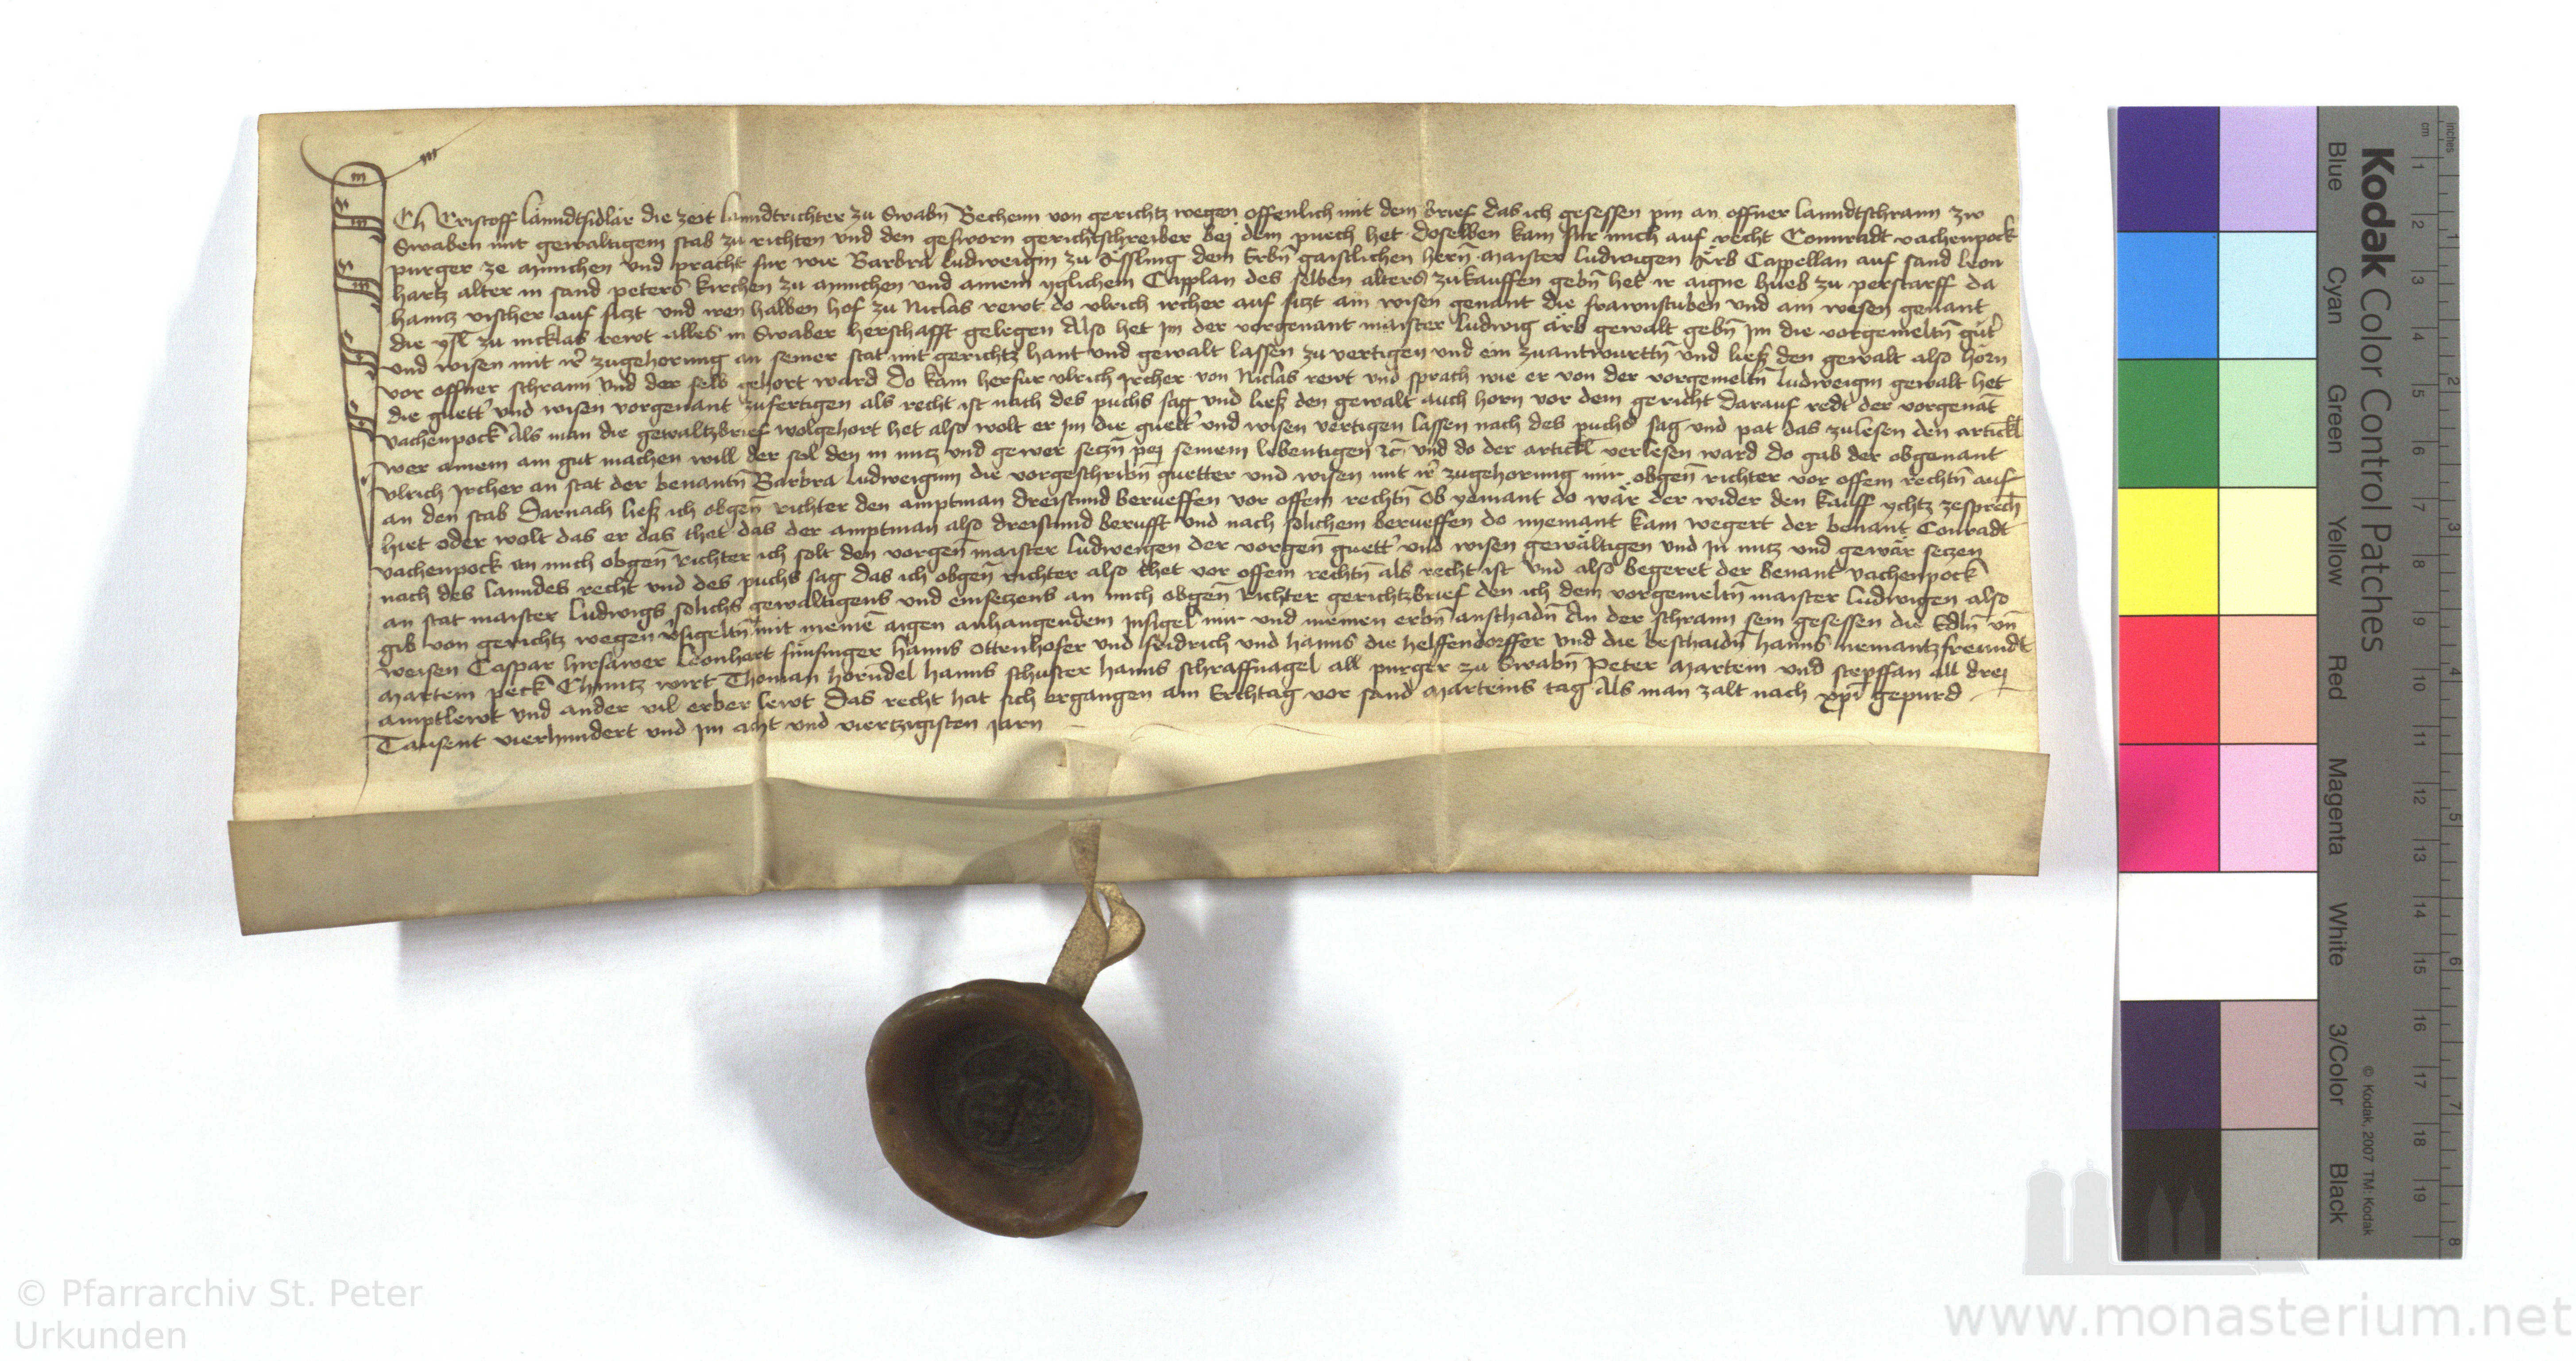 Ich Cristoff lanndtsidlär die zeit lanndtrichter zu Swabn̄ Bechenn von gerichtz wegen offenlich mit dem brief das ich gesessen pin an offner lanndtschrann zw
Swaben mit gewaltigem stab zu richten vnd den gesworn gerichtschreiber bej dem puech het doselben kam fur mich auf recht Connradt vachenpock
purger ze munchen vnd pracht fur wie Barbra ludweigin zu dem Erbn̄ gaistlichen hern̄ maister ludwigen Ärb Cappellan auf sand leon
hartz alter in sand peters kirchen zu munchen vnd ainem yglichem Capplan des selben alters zukauffen gebn̄ het ir aigne hueb zu perstarff da
hainz vischer auf sitzt vnd iren halben hof zu Niclas rewt do vlrich ircher auf sitzt ain wisen genant die frawnstuben vnd ain wesen genant
die zu nicklas rewt alles in Swaber herschafft gelegen Also het jm der vorgenant maister ludwig ärb gewalt gebn̄ jm die vorgemeltn̄ güt
vnd wisen mit ir zugehorung an seiner stat mit gerichtz hant vnd gewalt lassen zu vertigen vnd ein zuantwurttn̄ vnd liesz den gewalt also hörn
vor offner schrann vnd der selb gehort ward do kam herfur vlrich jrcher von Niclas rewt vnd sprach wie er von der vorgemeltn̄ ludweigin gewalt het
die guett vnd wisen vorgenant zufertigen als recht ist nach des puchs sag vnd liesz den gewalt auch horn vor dem gericht Darauf redt der vorgenāt
vachenpock Als man die gewaltzbrief wolgehort het also wolt er jm die guett vnd wisen vertigen lassen nach des puchs sag vnd pat das zulesen den artickl
wer ainem ain gut machen will der sol den in nutz vnd gewer setzn̄ pej seinem lebentigen vnd do der artickl verlesen ward do gab der obgenant
vlrich jrcher an stat der benantn̄ Barbra ludweiginn die vorgeschribn̄ guetter vnd wisen mit ir zugehorung mir obgen̄ richter vor offem rechtn̄ auf
an den stab Darnach liesz ich obgen̄ richter den amptman dreistund berueffen vor offem rechtn̄ ob yemant do wär der wider den kauff ychtz zesprech̄
hiet oder wolt das er das thet das der amptman also dreistund berufft vnd nach solichem berueffen do nyemant kam wegert der benant Conradt
vachenpock an mich obgen̄ richter ich solt den vorgen̄ maister ludweigen der vorgen̄ guett vnd wisen gewältigen vnd jn nutz vnd gewär setzen
nach des lanndes recht vnd des puchs sag das ich obgen̄ richter also thet vor offem rechtn̄ als recht ist vnd also begeret der benant vachenpock
an stat maister ludwigs solichs gewaltigens vnd einsetzens an mich obgen̄ Richter gerichtzbrief den ich dem vorgemeltn̄ maister ludwigen also
gib von gerichtz wegen vsigeltn̄ mit meinē aigen anhangendem jnsigel mir vnd meinen erbn̄ anschadn̄ An der schrann sein gesessen die Edln̄ vn̄
weisen Caspar hirsawer leonhart fünfinger hanns ottenhofer vnd fridrich vnd hanns die helffendorffer vnd die beschaidn̄ hanns niemantzfreundt
martein peck Chuntz wirt Thoman hörndel hanns schuster hanns schraffnagel all purger zu Swabn̄ Peter martein vnd steppffan all drej
amptlewt vnd ander vil erber lewt Das recht hat sich ergangen am Erchtag vor sand marteins tag Als man zalt nach xpī gepurd
Tausent vierhundert vnd jm acht vnd viertzigisten jarn
Kodak Color Control Patches
Blue Cyan Green Yellow Red Magenta White 3/Color Black
© Kodak, 2007 TM: Kodak
cm 1 2 3 4 5 6 7 8 9 10 11 12 13 14 15 16 17 18 19
inches 1 2 3 4 5 6 7 8
© Pfarrarchiv St. Peter
Urkunden
www.monasterium.net